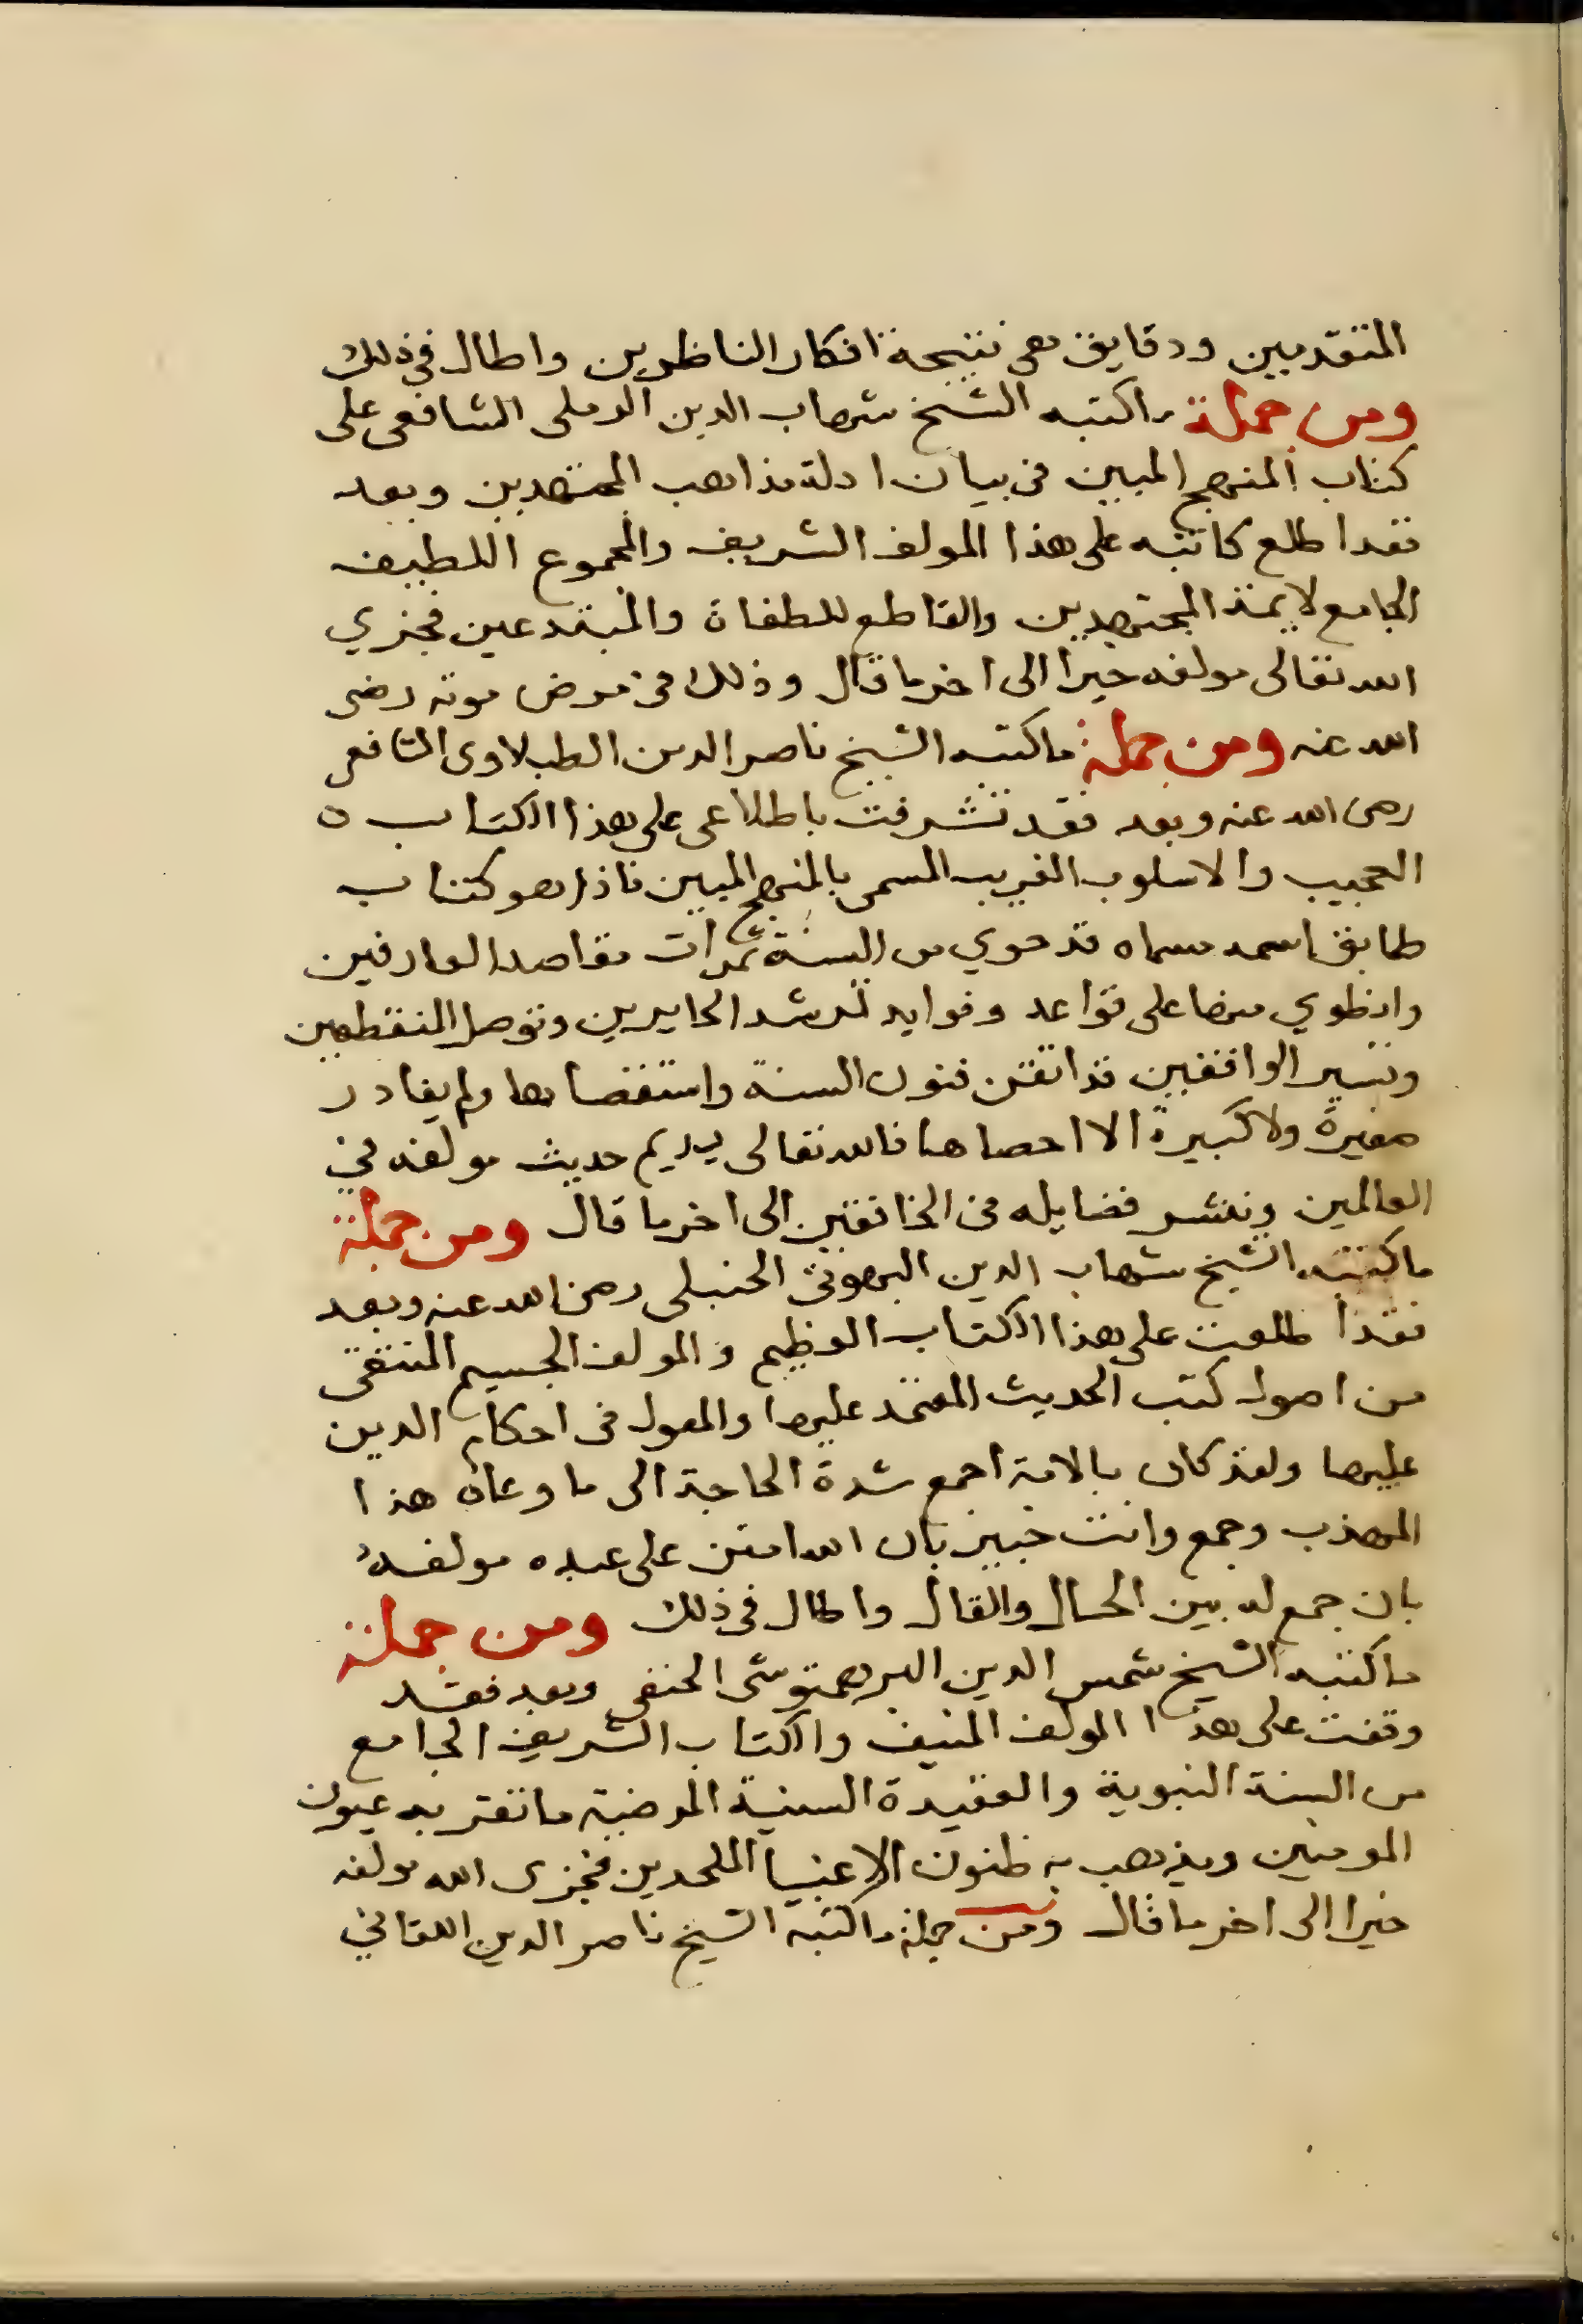 المتقدمين ودقايق هي نتيجة افكار الناظرين واطال في ذلك
ومن جملة ماكتبه الشيخ شهاب الدين الرملى الشافعى على
كتاب المنهج المبين فى بيان ادلة مذاهب المجتهدين وبعد
فقد اطلع كاتبه على هذا المولف الشريف والمجموع اللطيف
الجامع لايمة المجتهدين والقاطع للطغاة والمبتدعين فجزي
الله تعالى مولفه خيرا الى اخر ما قال وذلك في مرض موته رضى
الله عنه ومن جملة ماكتبه الشيخ ناصر الدين الطبلاوى الشافعى
رضى الله عنه وبعد فقد تشرفت باطلاعى على هذا الكتاب
العجيب والاسلوب الغريب المسمى بالمنهج المبين فاذا هو كتاب
طابق اسمه مسماه قد حوي من السنة ثمرات مقاصد العارفين
وانطوي منها على قواعد وفوايد ترشد الحايرين وتوصل المنقطعين
وتسير الواقفين قد اتقن فنون السنة واستقصاها ولم يغادر
صغيرة ولا كبيرة الا احصاها فالله تعالى يديم حديث مولفه في
العالمين وينشر فضايله فى الخافقين الى اخر ما قال ومن جملة
ماكتبه الشيخ شهاب الدين البهوتى الحنبلى رضى الله عنه وبعد
فقد اطلعت على هذا الكتاب العظيم والمولف الجسيم المنتقى
من اصول كتب الحديث المعتمد عليها والمعول فى احكام الدين
عليها ولقد كان بالامة اجمع شدة الحاجة الى ما وعاه هذا
المهذب وجمع وانت خبير بان الله امتن على عبده مولفه
بان جمع له بين الحال والقال واطال فى ذلك ومن جملة
ماكتبه الشيخ شمس الدين البرهمتوشى الحنفى وبعد فقد
وقفت على هذا المولف المنيف والكتاب الشريف الجامع
من السنة النبوية والعقيدة السنية المرضية ما تقر به عيون
المومنين ويذهب به ظنون الاغبيا الملحدين فجزى الله مولفه
خيرا الى اخر ما قال ومن جملة ماكتبه الشيخ ناصر الدين اللقاني